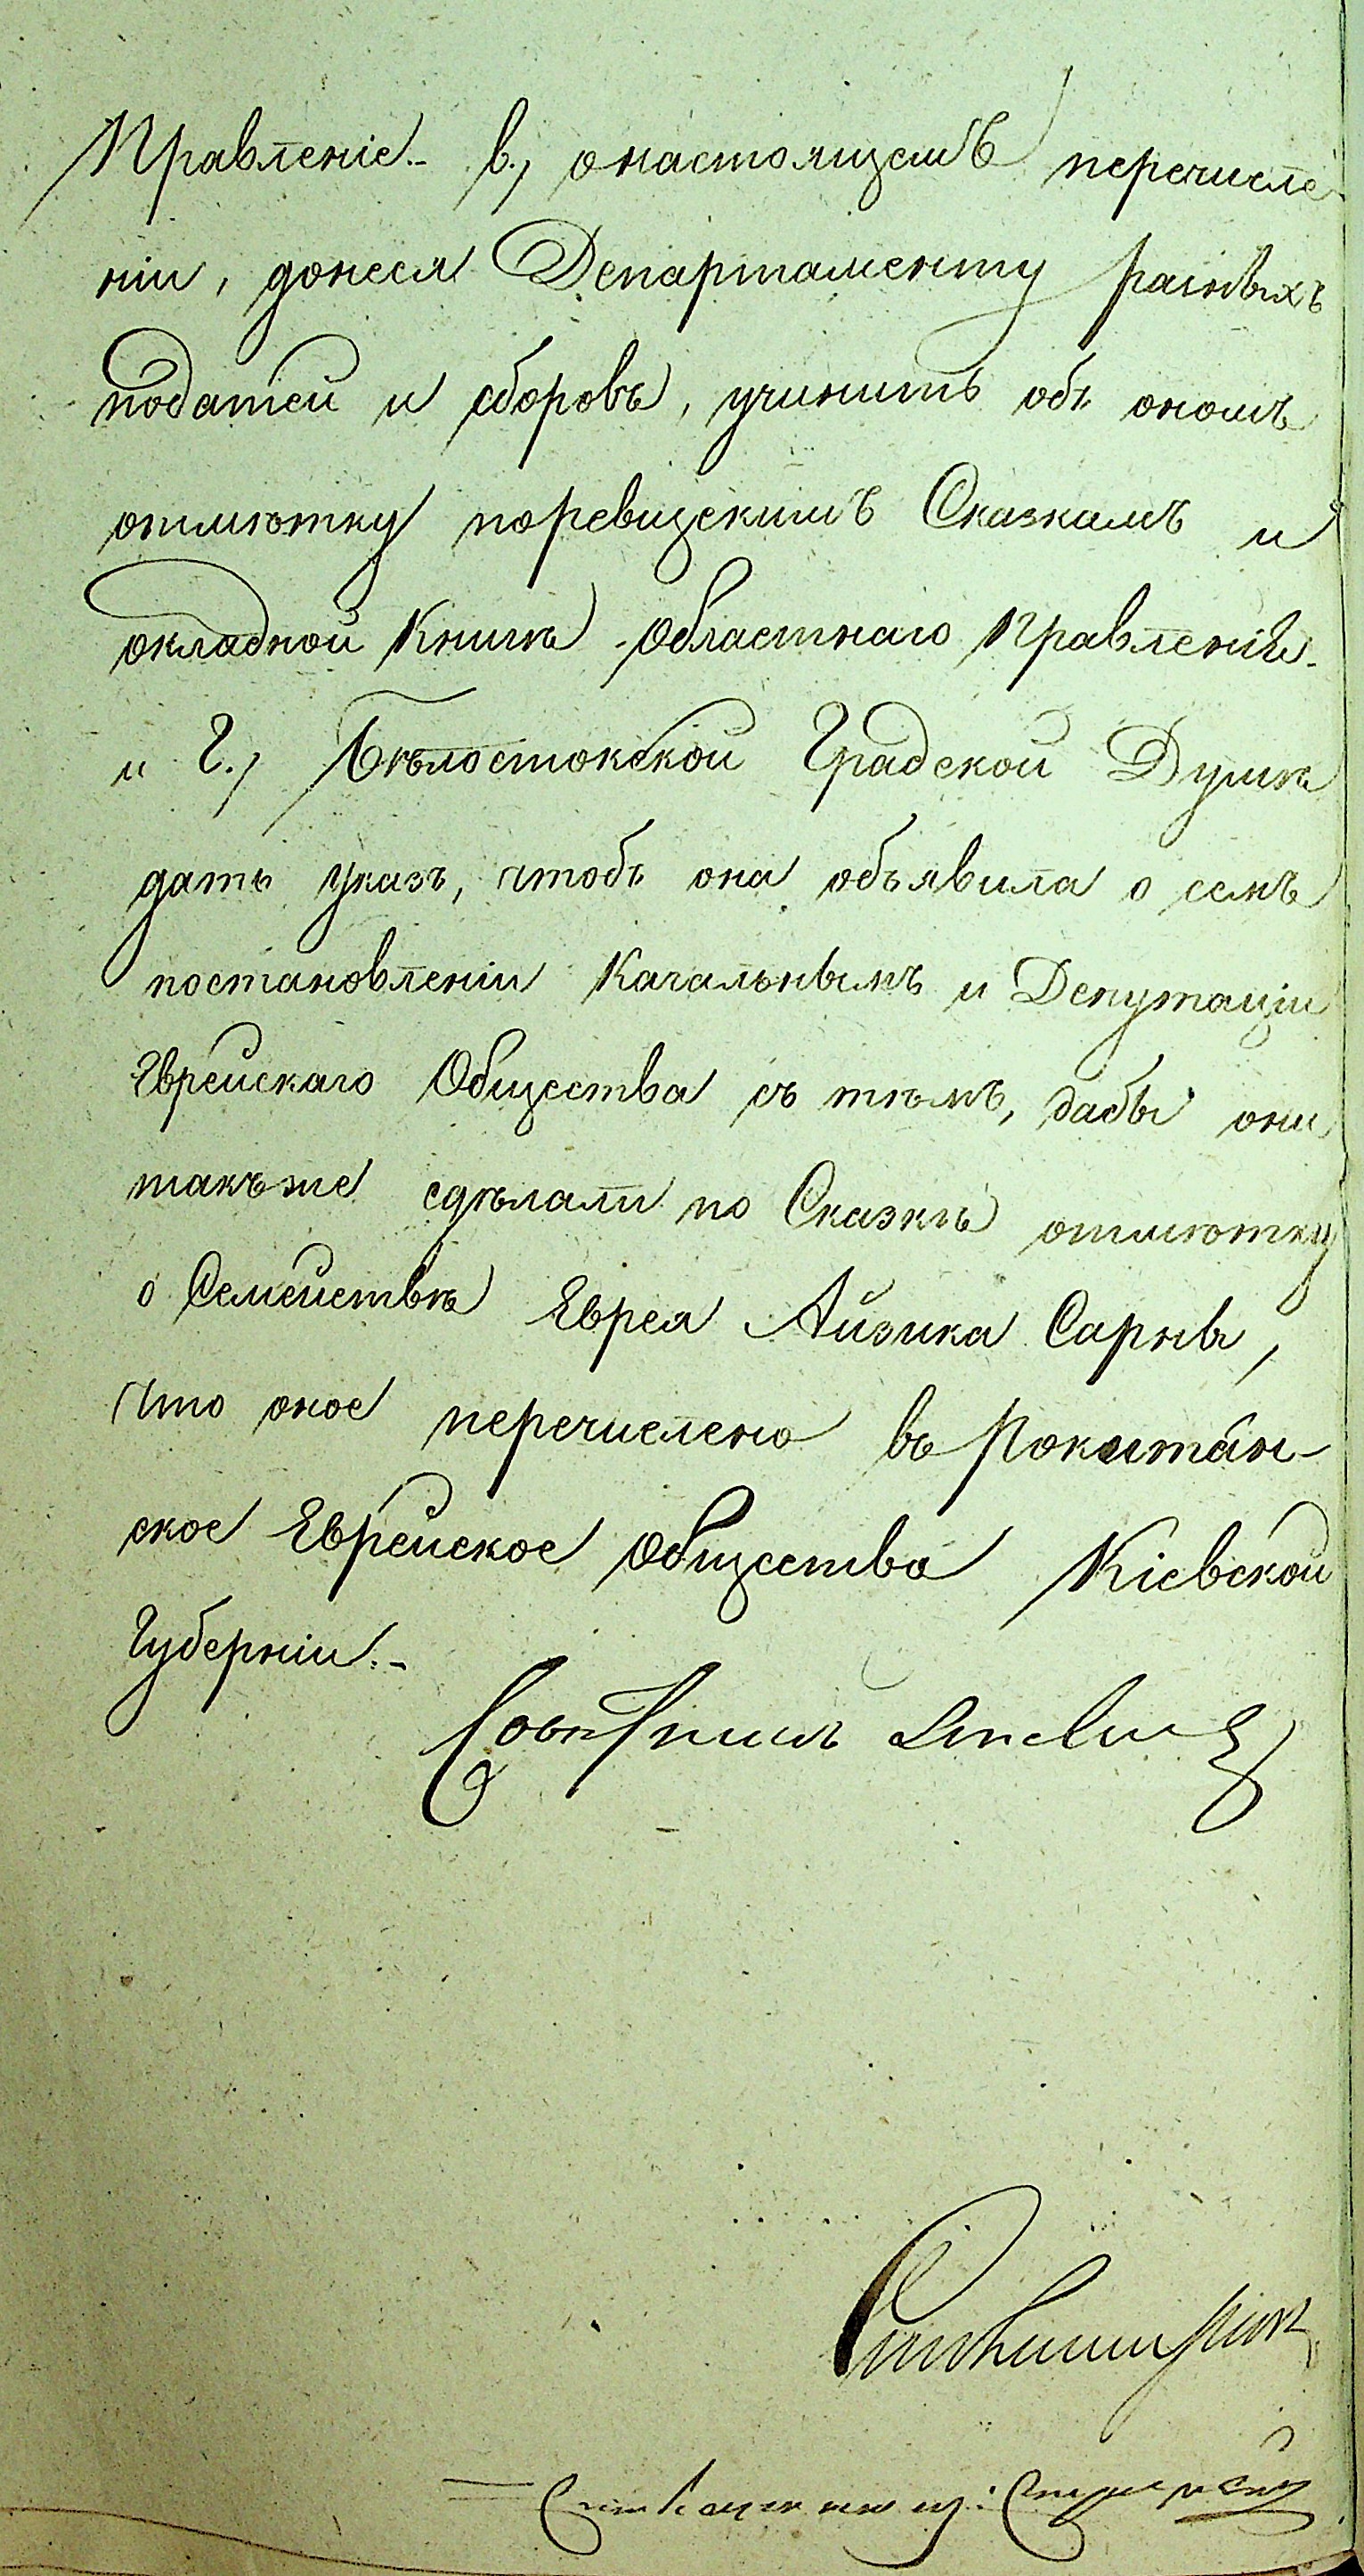 Правленіе.- в., о настоящемъ перечисле-
ніи, донеся Департаменту разныхъ
податей и сборовъ, учинить объ ономъ
отмѣтку по ревизскимъ Сказкамъ и
окладной Книгѣ Областнаго Правленія.
и Г., Бѣлостокской Градской Думѣ
дать указъ, чтобъ она объявила о семъ
постановленіи Кагальнымъ и Депутаціи
Еврейскаго Общества съ тѣмъ, дабы они
такъже сдѣлали по Сказкѣ отмѣтку
о Семействѣ Еврея Айзика Сарны,
что оное перечислено въ Рокитан-
ское Еврейское Общество Кіевской
Губерніи.-
Совѣтникъ